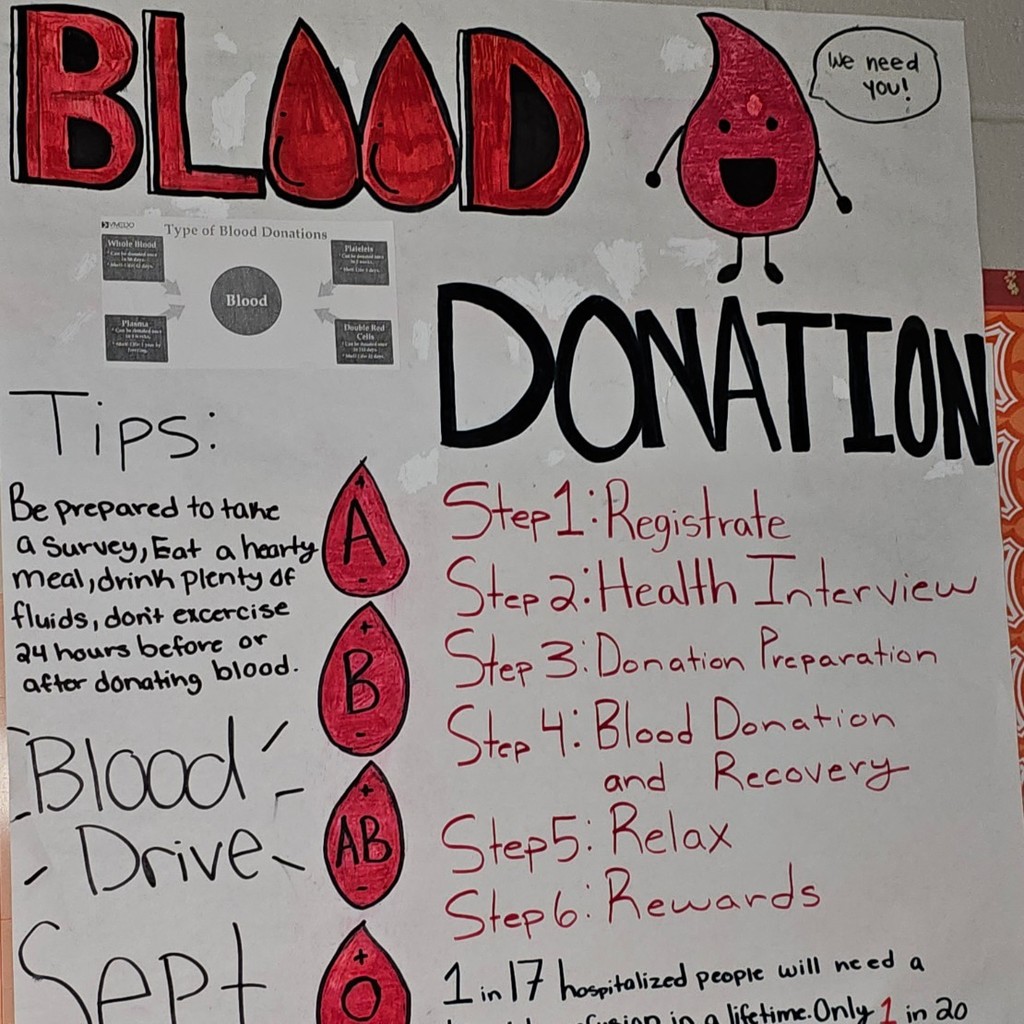 BLOOD
We need
you!
Type of Blood Donations
Whole Blood
Platelets
Blood
Plasma
Double Red
Cells
DONATION
Tips:
Be prepared to take
a survey, Eat a hearty
meal, drink plenty of
fluids, don't excercise
24 hours before or
after donating blood.
Blood
Drive
Sept
+
A
-
+
B
-
+
AB
-
+
O
Step 1: Registrate
Step 2: Health Interview
Step 3: Donation Preparation
Step 4: Blood Donation
and Recovery
Step 5: Relax
Step 6: Rewards
1 in 17 hospitalized people will need a
in a lifetime. Only 1 in 20